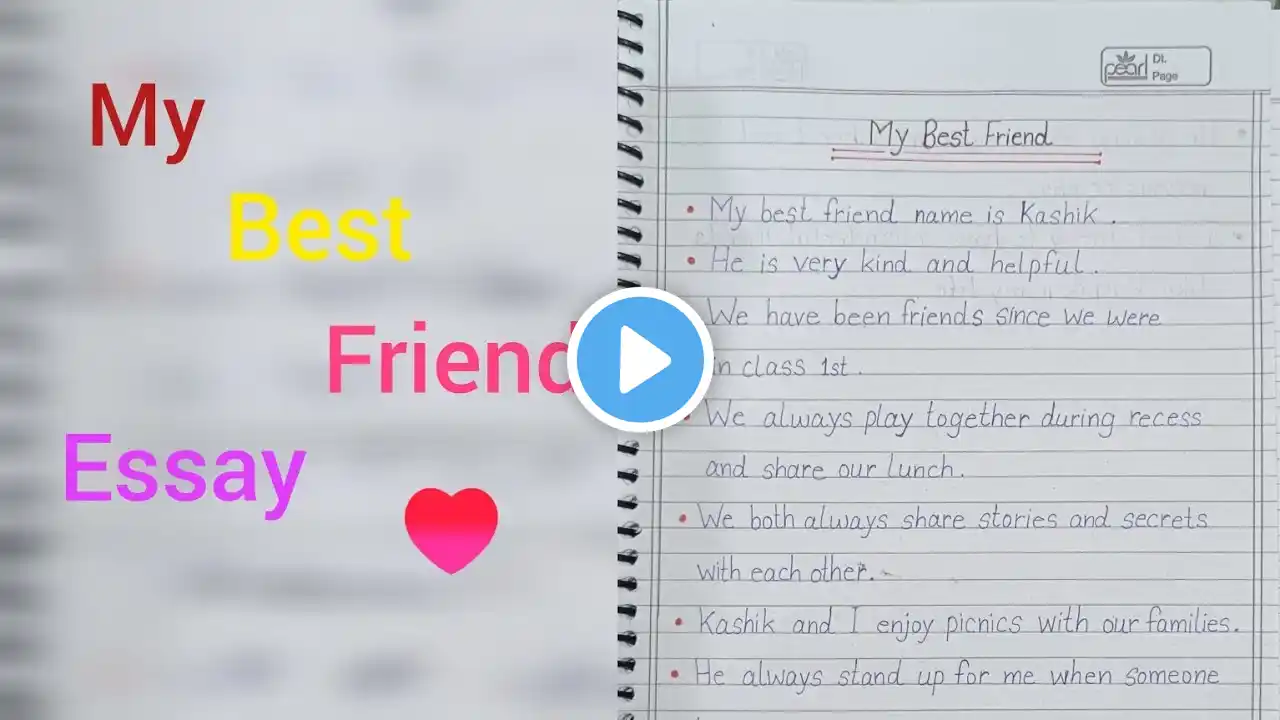 My
Best
Friend
Essay
pearl
Dt.
Page
My Best Friend
• My best friend name is Kashik.
• He is very kind and helpful.
We have been friends since we were
in class 1st.
• We always play together during recess
and share our lunch.
• We both always share stories and secrets
with each other.
• Kashik and I enjoy picnics with our families.
• He always stand up for me when someone